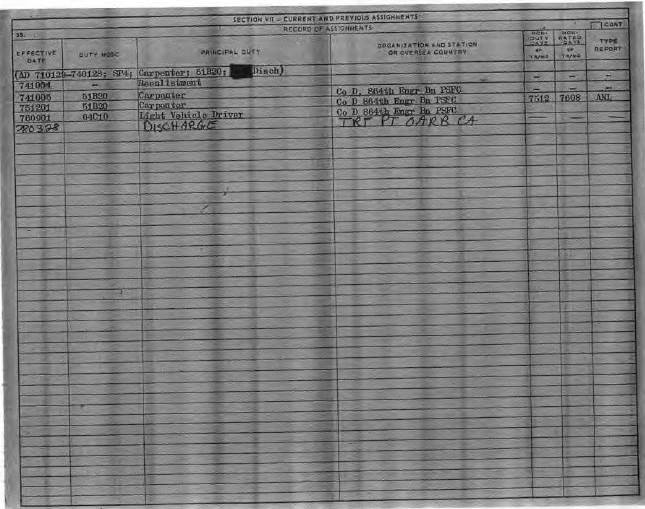 SECTION VII - CURRENT AND PREVIOUS ASSIGNMENTS
35. RECORD OF ASSIGNMENTS CONT
EFFECTIVE DATE DUTY MOSC PRINCIPAL DUTY ORGANIZATION AND STATION OR OVERSEA COUNTRY NON-DUTY DAYS NON-RATED DAYS TYPE REPORT
(AD 710129-740128; SP4; Carpenter; 51B20; Disch) - -
741004 - Reenlistment - - -
741005 51B20 Carpenter Co D, 864th Engr Bn PSFC
751201 51B20 Carpenter Co D 864th Engr Bn PSFC 7512 7608 ANL
760901 64C10 Light Vehicle Driver Co D 864th Engr Bn PSFC - - -
780328 DISCHARGE TRF PT OARB CA